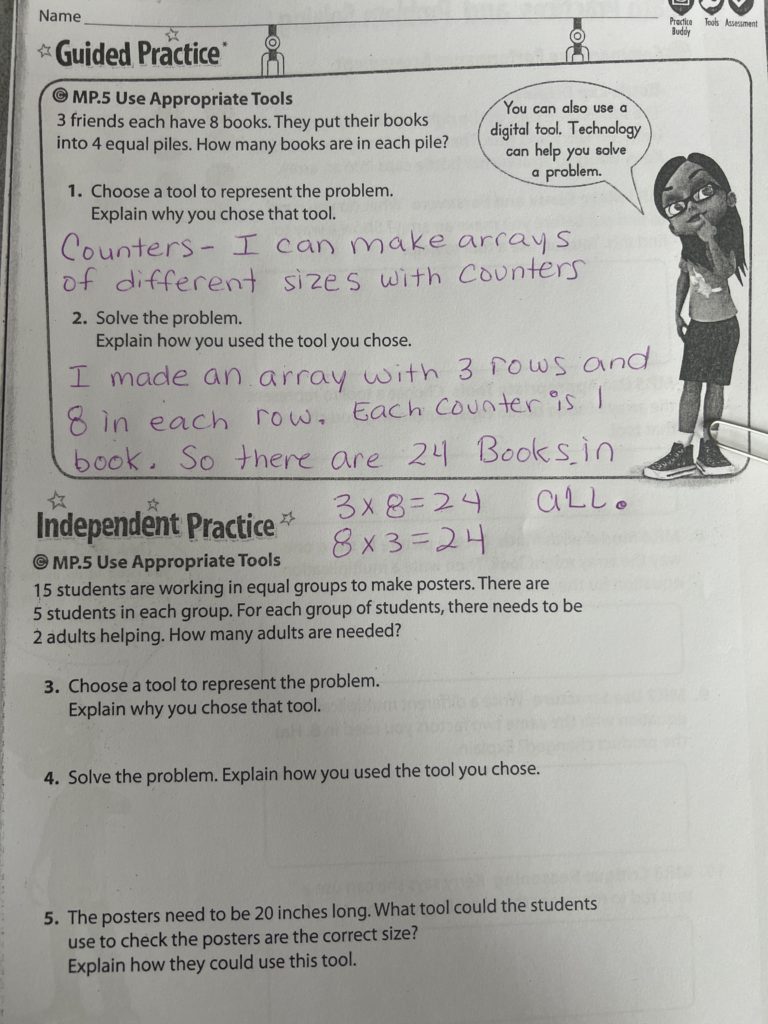 Name
Practice Buddy
Tools
Assessment
Guided Practice*
© MP.5 Use Appropriate Tools
3 friends each have 8 books. They put their books
into 4 equal piles. How many books are in each pile?
You can also use a
digital tool. Technology
can help you solve
a problem.
1. Choose a tool to represent the problem.
Explain why you chose that tool.
Counters - I can make arrays
of different sizes with counters
2. Solve the problem.
Explain how you used the tool you chose.
I made an array with 3 rows and
8 in each row. Each counter is 1
book. So there are 24 Books in
3 x 8 = 24 aLL.
8 x 3 = 24
Independent Practice
© MP.5 Use Appropriate Tools
15 students are working in equal groups to make posters. There are
5 students in each group. For each group of students, there needs to be
2 adults helping. How many adults are needed?
3. Choose a tool to represent the problem.
Explain why you chose that tool.
4. Solve the problem. Explain how you used the tool you chose.
5. The posters need to be 20 inches long. What tool could the students
use to check the posters are the correct size?
Explain how they could use this tool.